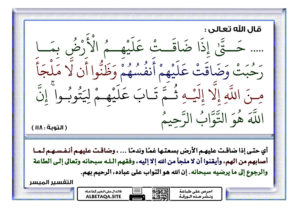 قال الله تعالى :
..... حَتَّىٰ إِذَا ضَاقَتْ عَلَيْهِمُ الْأَرْضُ بِمَا
رَحُبَتْ وَضَاقَتْ عَلَيْهِمْ أَنفُسُهُمْ وَظَنُّوا أَن لَّا مَلْجَأَ
مِنَ اللَّهِ إِلَّا إِلَيْهِ ثُمَّ تَابَ عَلَيْهِمْ لِيَتُوبُوا ۚ إِنَّ
اللَّهَ هُوَ التَّوَّابُ الرَّحِيمُ
( التوبة : ١١٨ )
أي حتى إذا ضاقت عليهم الأرض بسعتها غمًّا وندمًا ... ، وضاقت عليهم أنفسهم لما
أصابهم من الهم، وأيقنوا أن لا ملجأ من الله إلا إليه، وفقهم الله سبحانه وتعالى إلى الطاعة
والرجوع إلى ما يرضيه سبحانه. إن الله هو التواب على عباده، الرحيم بهم.
التفسير الميسر
ALBETAQA.SITE